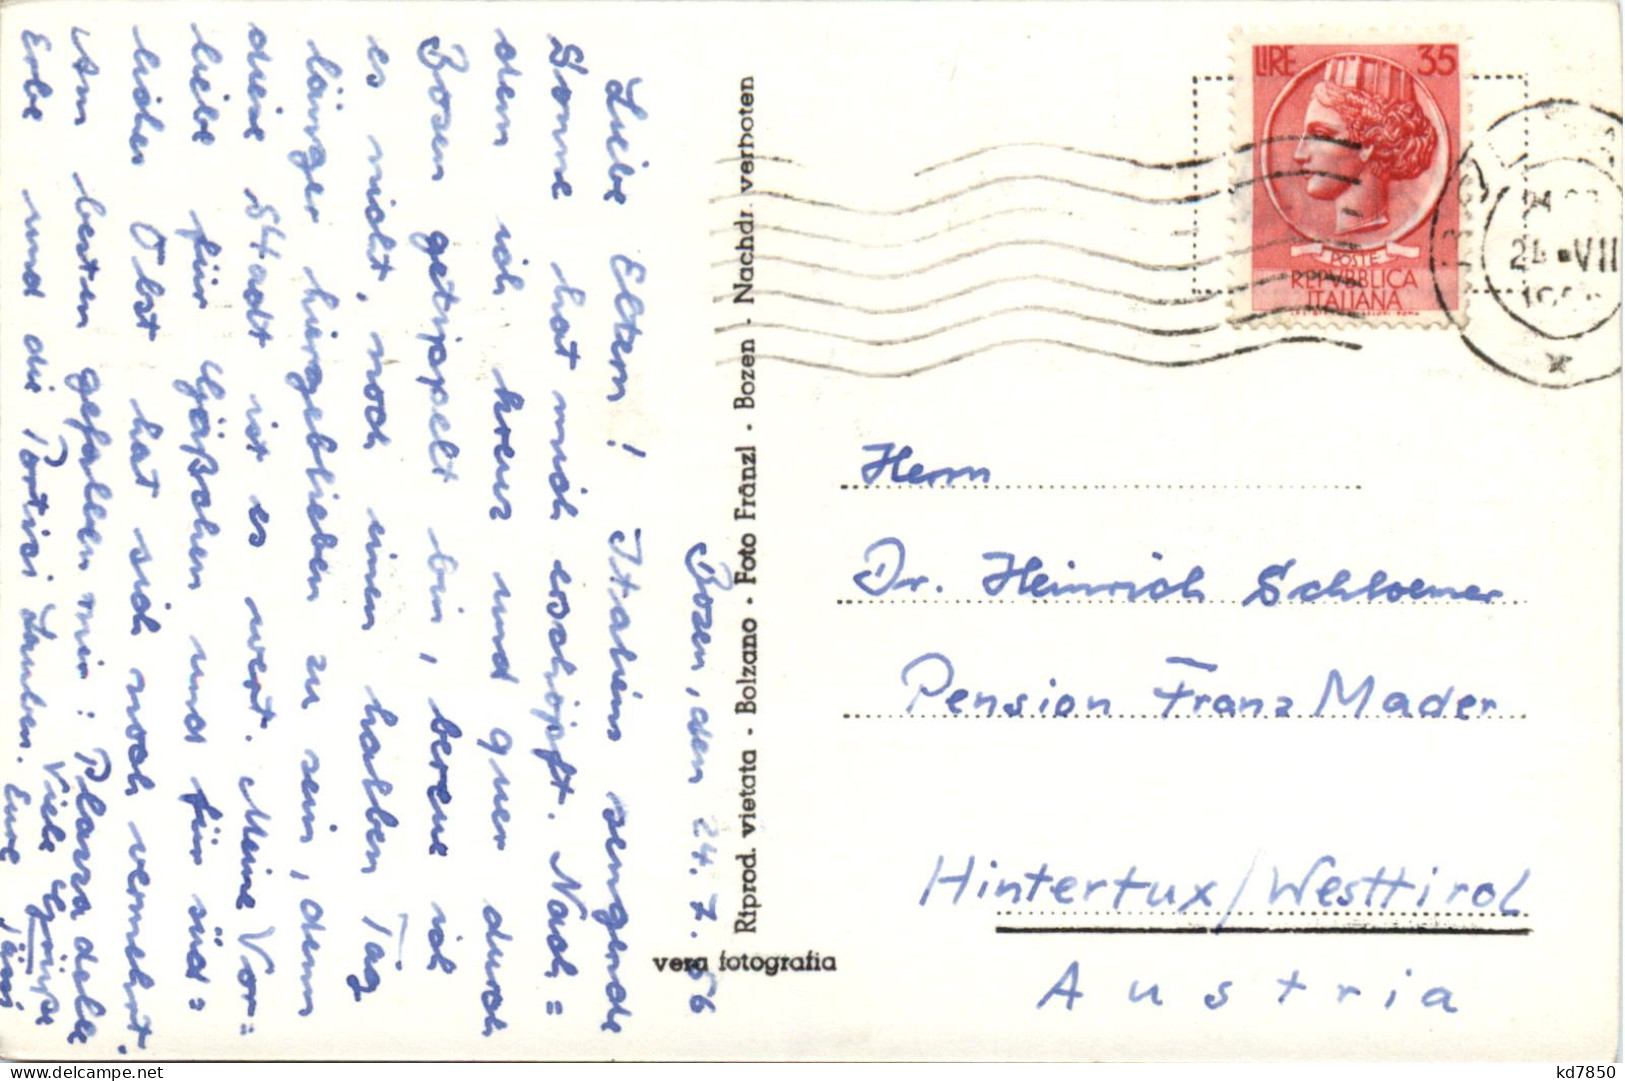 Bozen, den 24.7.56
Liebe Eltern! Italiens sengende
Sonne hat mich erschöpft. Nach=
dem ich kreuz und quer durch
Bozen getrippelt bin, bereue ich
es nicht, noch einen halben Tag
länger hiergeblieben zu sein, denn
diese Stadt ist es wert. Meine Vor=
liebe für Gäßchen und für süd=
liches Obst hat sich noch vermehrt.
Am besten gefallen mir: Piazza delle
Erbe und die Portici Lauben.
Viele Grüße
Eure
Riprod. vietata - Bolzano - Foto Fränzl - Bozen - Nachdr. verboten
vera fotografia
LIRE 35
POSTE
REPVBBLICA
ITALIANA
24 •VII
Herrn
Dr. Heinrich Schloemer
Pension Franz Mader
Hintertux/Westtirol
Austria
kd7850